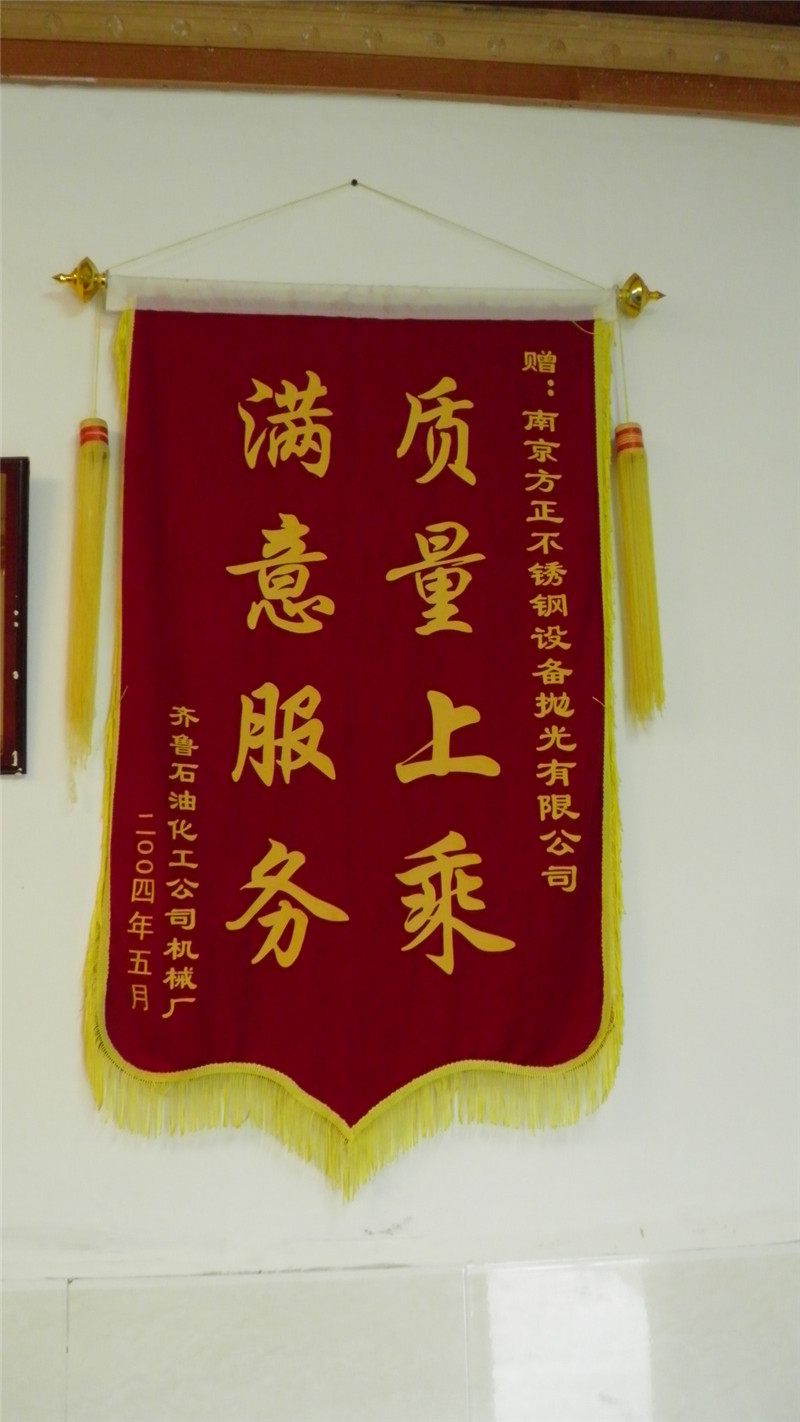 赠：南京方正不锈钢设备抛光有限公司
质量上乘
满意服务
齐鲁石油化工公司机械厂
二〇〇四年五月